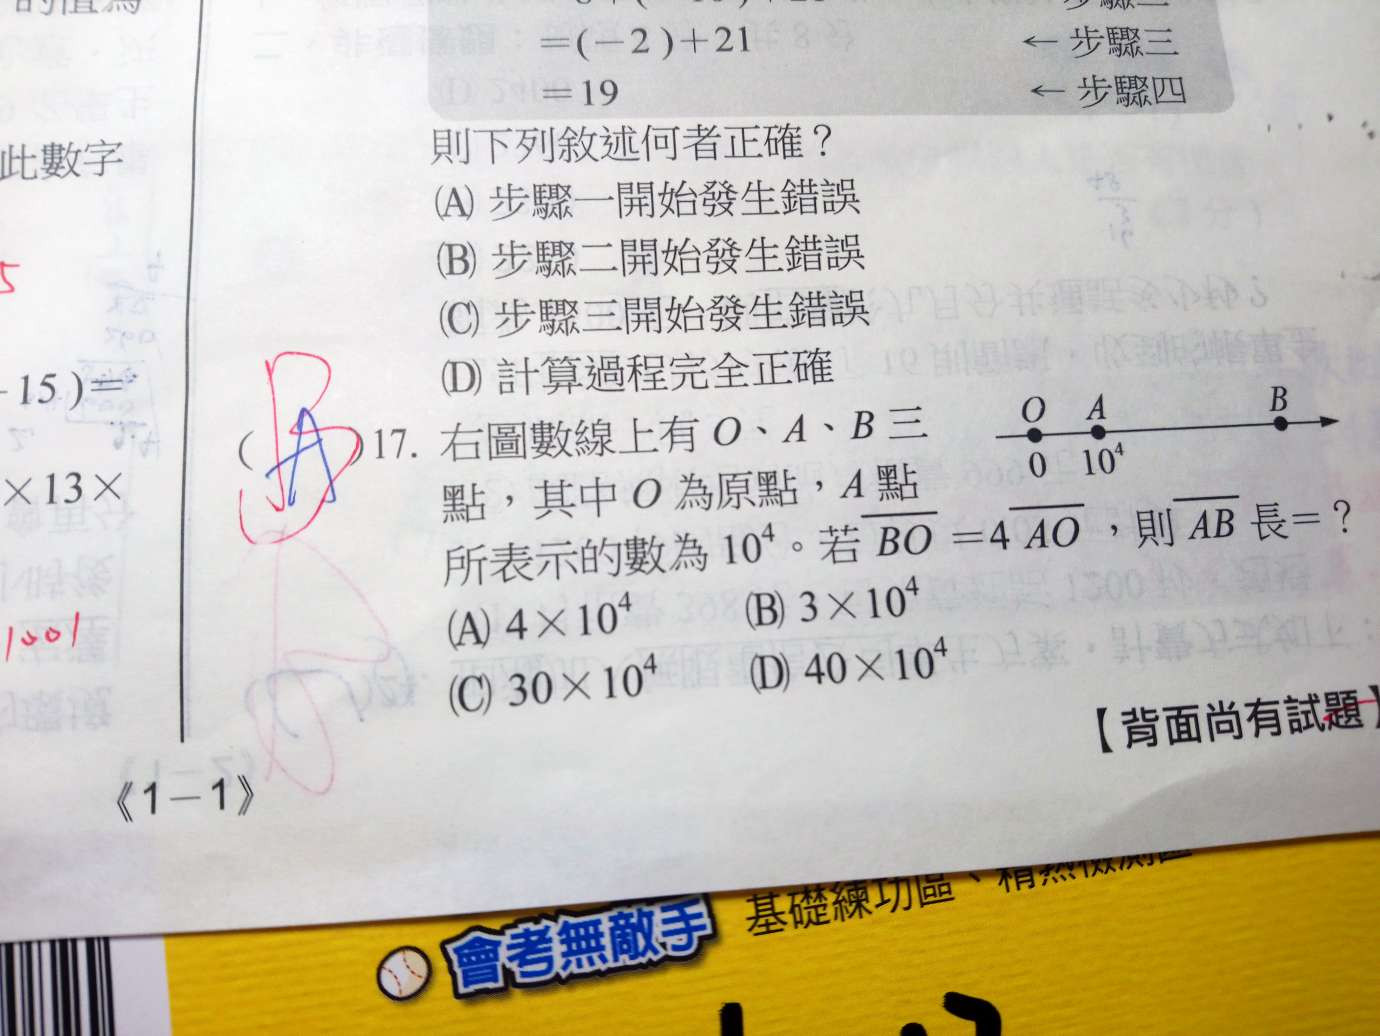 的值為
=(-2)+21 ← 步驟三
=19 ← 步驟四
此數字
則下列敘述何者正確？
(A) 步驟一開始發生錯誤
(B) 步驟二開始發生錯誤
(C) 步驟三開始發生錯誤
(D) 計算過程完全正確
5
-15)=
×13×
1001
B
A
( )17. 右圖數線上有 O、A、B 三
點，其中 O 為原點，A 點
所表示的數為 10⁴。若 B̅O̅ =4 A̅O̅，則 A̅B̅ 長=？
O A B
0 10⁴
(A) 4×10⁴ (B) 3×10⁴
(C) 30×10⁴ (D) 40×10⁴
【背面尚有試題】
《1-1》
基礎練功區、精熟檢測區
會考無敵手